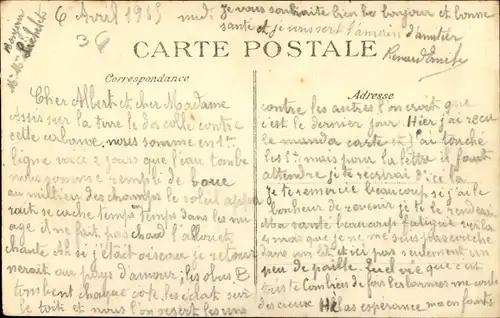 6 Avril 1915 midi Je vous souhaite bien le bonjour et bonne
santé et je vous sert l'amain d'amitier
36
Renaud Emile
CARTE POSTALE
Correspondance
Adresse
Cher Albert et cher Madame
Assis sur la terre le dos collé contre
cette cabane, nous somme en 1ère
ligne voice 2 jours que l'eau tombe
nous somme rempli de boue
au millieu des champs le soleil appa
rait se cache temps temps dans les nu
age il ne fait pas chaud l'allouet
chante Ah si j'étais oiseau je retour
nerait au pays d'amour; les obus B
tombent chaque coté les éclat sur
le toit et nous l'on resert les uns
contre les autres l'on croit que
c'est le dernier jour. Hier j'ai reçu
le manda carte et j'ai touché
les mais pour la lettre il faut
attendre je te recrirai d'ici la
Je te remercie beaucoup si j'ai le
bonheur de revenir je te le rendeux
Ma santé beaucoup fatiguer
mais que je ne me suis pas couché
dans son lit et ici pas seulement un
peu de paille. Quel vie que c'est
triste Combien de fois les larmes me coule
des cieux Hélas espérance